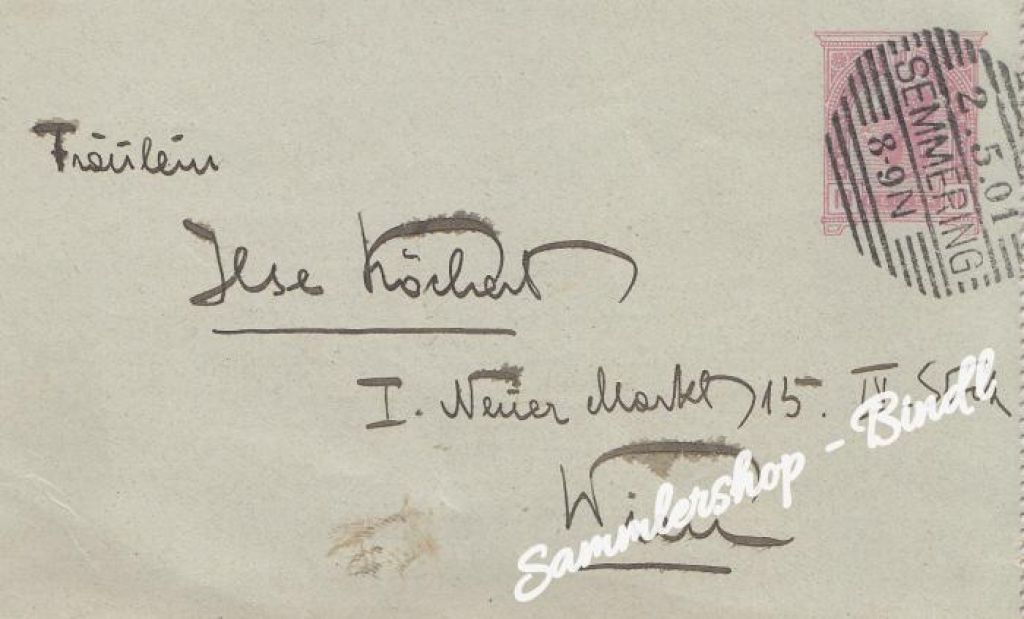 Fräulein
Ilse Köchert
I. Neuer Markt 15. IV. Stock
Wien
SEMMERING
2.5.01
8-9N
Sammlershop - Bindl